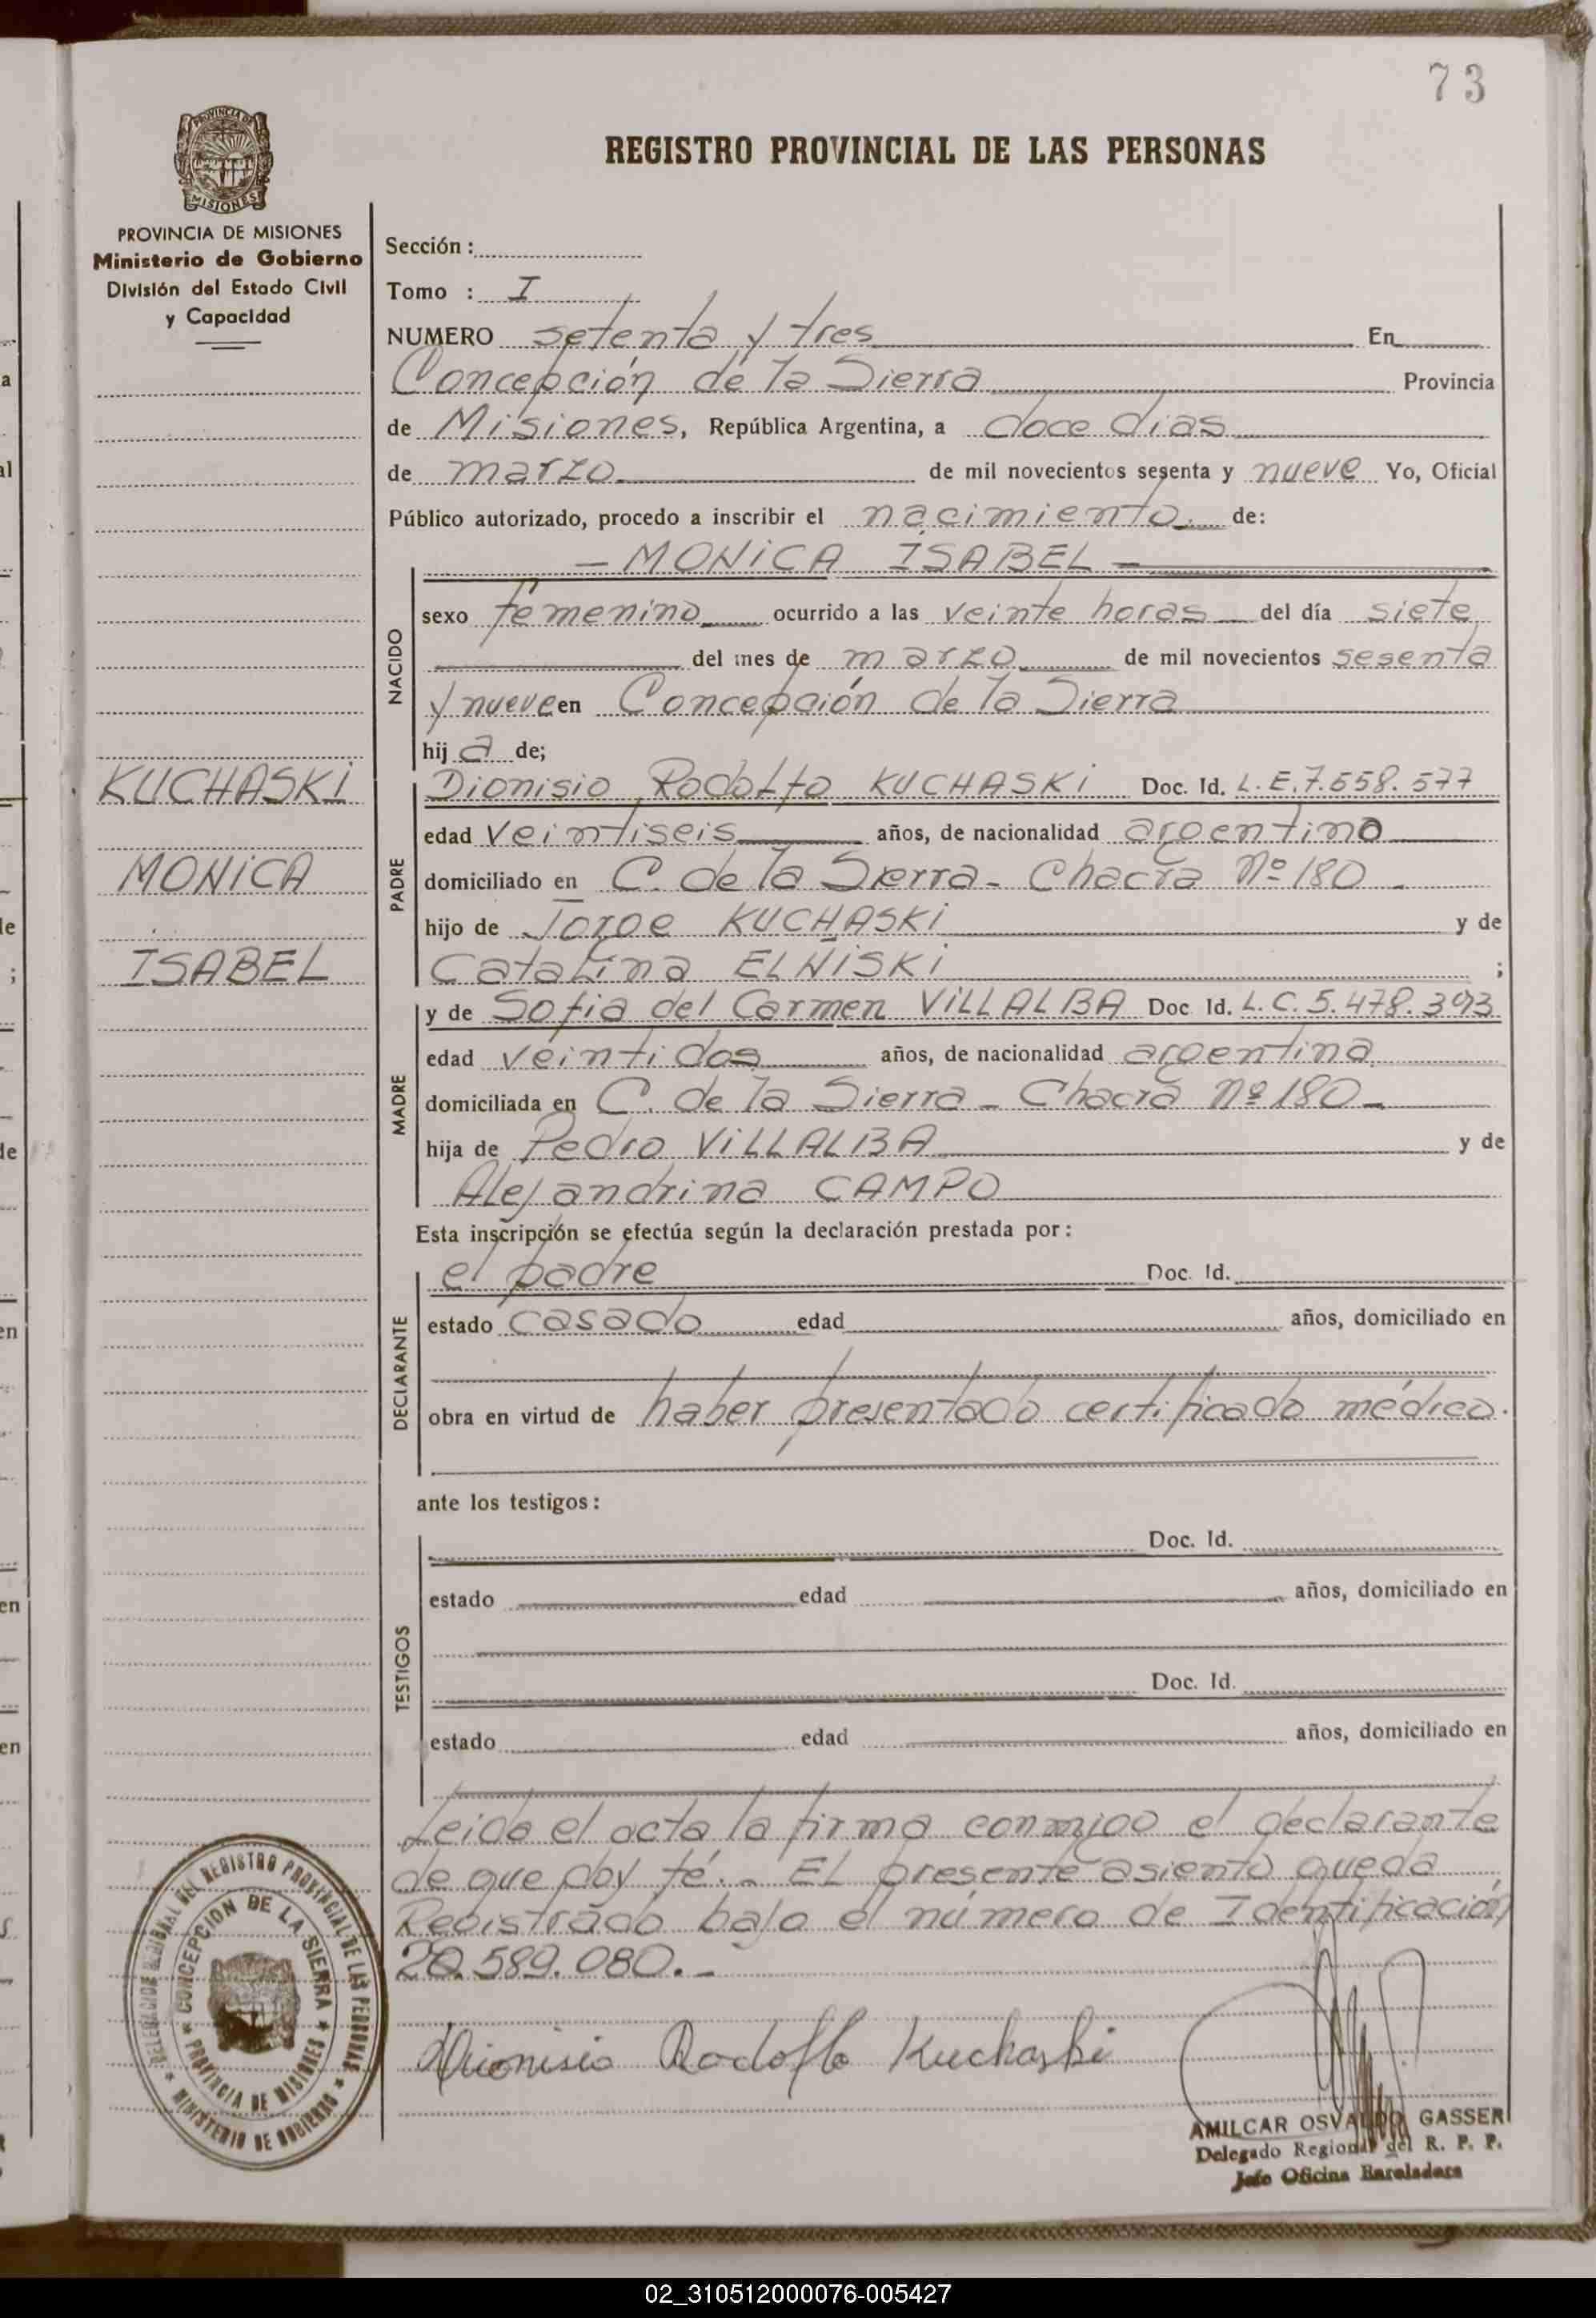 73
PROVINCIA DE
MISIONES
PROVINCIA DE MISIONES
Ministerio de Gobierno
División del Estado Civil
y Capacidad
REGISTRO PROVINCIAL DE LAS PERSONAS
Sección :
Tomo : I
NUMERO setenta y tres En
Concepción de la Sierra Provincia
de Misiones, República Argentina, a doce días
de marzo de mil novecientos sesenta y nueve Yo, Oficial
Público autorizado, procedo a inscribir el nacimiento. de:
— MONICA ISABEL —
NACIDO
sexo femenino ocurrido a las veinte horas del día siete
del mes de marzo de mil novecientos sesenta
y nueve en Concepción de la Sierra
hij a de;
KUCHASKI
MONICA
ISABEL
PADRE
Dionisio Rodolfo KUCHASKI Doc. Id. L.E.7.558.577
edad veintiseis años, de nacionalidad argentino
domiciliado en C. de la Sierra - Chacra Nº 180 -
hijo de Jorge KUCHASKI y de
Catalina ELNISKI ;
MADRE
y de Sofia del Carmen VILLALBA Doc. Id. L.C. 5.478.393
edad veintidos años, de nacionalidad argentina
domiciliada en C. de la Sierra - Chacra Nº 180 -
hija de Pedro VILLALBA y de
Alejandrina CAMPO
Esta inscripción se efectúa según la declaración prestada por :
DECLARANTE
el padre Doc. Id.
estado casado edad años, domiciliado en
obra en virtud de haber presentado certificado médico.
ante los testigos :
TESTIGOS
Doc. Id.
estado edad años, domiciliado en
Doc. Id.
estado edad años, domiciliado en
Leida el acta la firma conmigo el declarante
de que doy fé. - El presente asiento queda
Registrado bajo el número de Identificación
20.589.080. -
Dionisio Rodolfo Kuchaski
DELEGACION REGIONAL DEL REGISTRO PROVINCIAL DE LAS PERSONAS
* MINISTERIO DE GOBIERNO *
* CONCEPCION DE LA SIERRA *
PROVINCIA DE MISIONES
AMILCAR OSVALDO GASSER
Delegado Regional del R. P. P.
Jefe Oficina
02_310512000076-005427